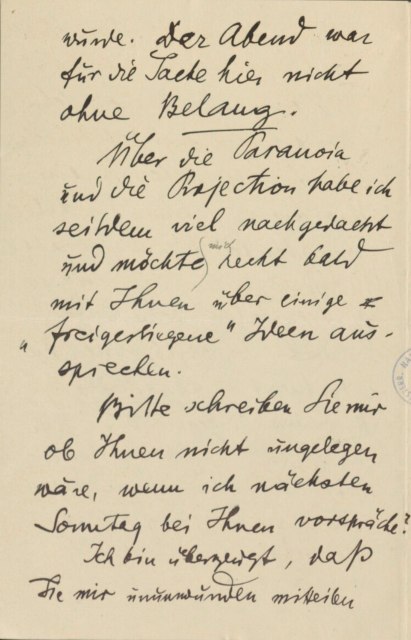 wurde. Der Abend war
für die Sache hier nicht
ohne Belang.
Über die Paranoia
und die Projection habe ich
seitdem viel nachgedacht
und möchte mich recht bald
mit Ihnen über einige
„freigestiegene" Ideen aus-
sprechen.
Bitte schreiben Sie mir
ob Ihnen nicht ungelegen
wäre, wenn ich nächsten
Sonntag bei Ihnen vorspräche?
Ich bin überzeugt, daß
Sie mir unumwunden mitteilen